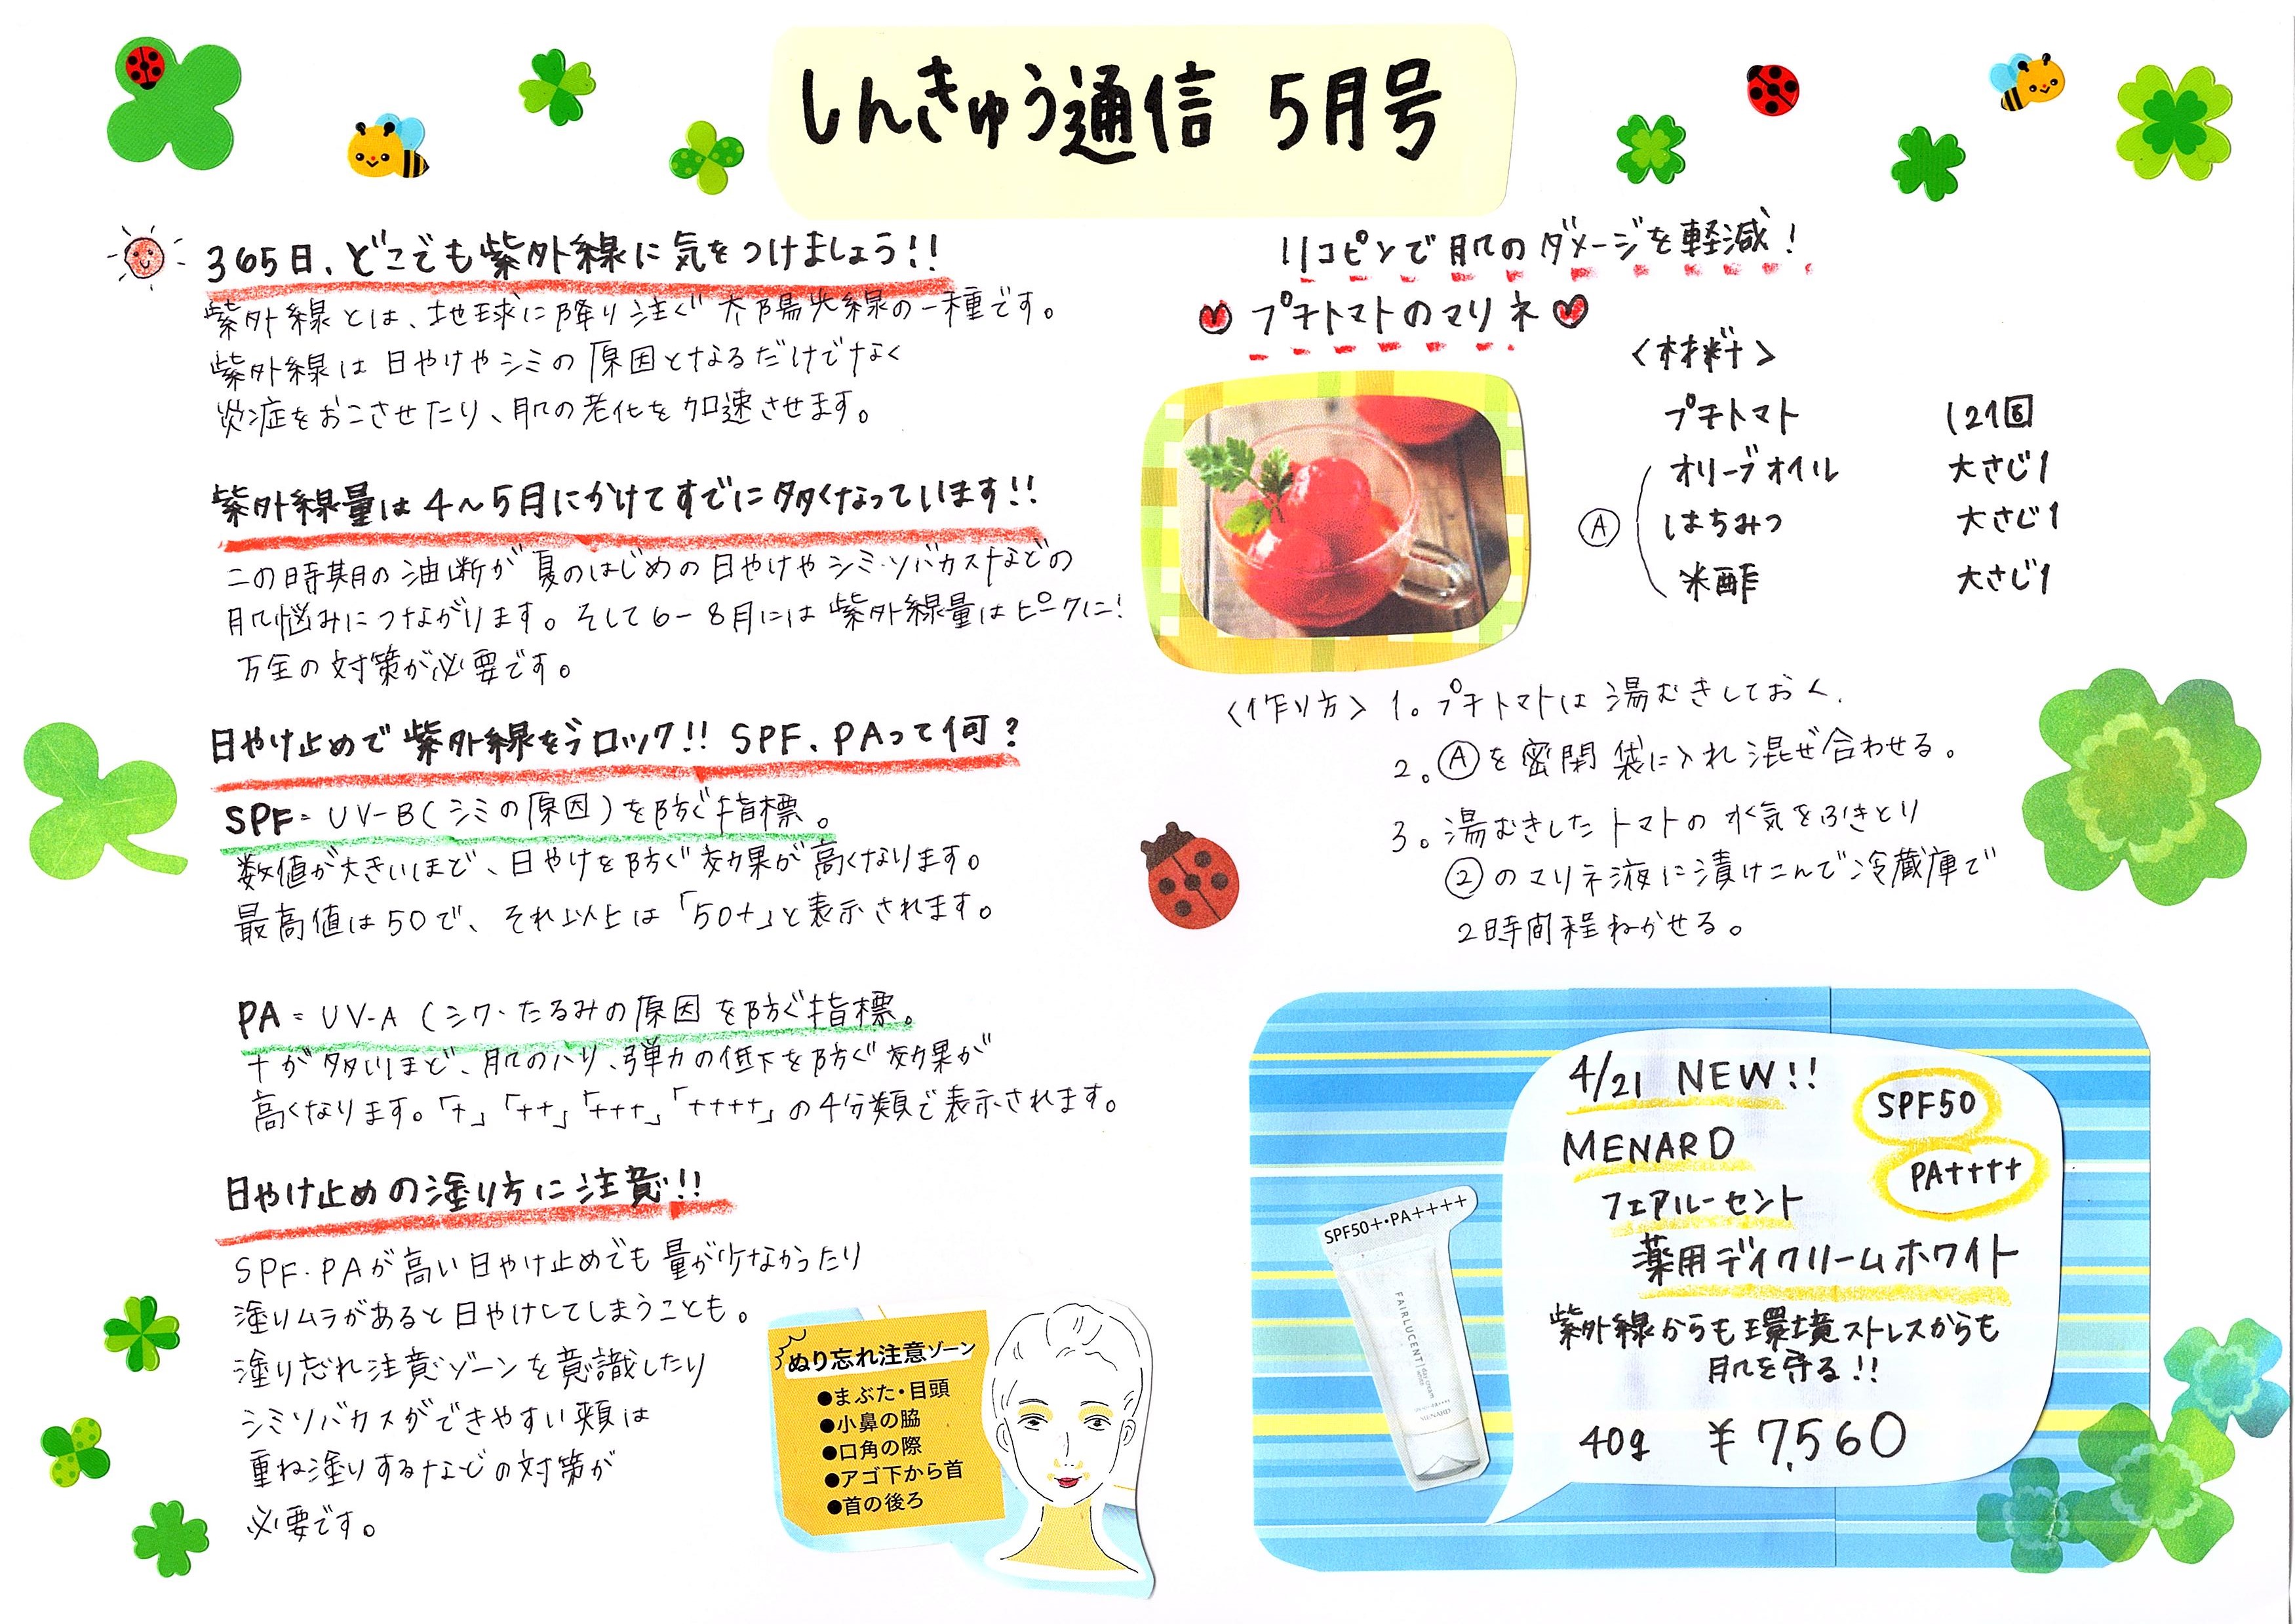 しんきゅう通信 5月号
365日、どこでも紫外線に気をつけましょう!!
紫外線とは、地球に降り注ぐ太陽光線の一種です。
紫外線は日やけやシミの原因となるだけでなく
炎症をおこさせたり、肌の老化を加速させます。
紫外線量は4〜5月にかけてすでに多くなっています!!
この時期の油断が夏のはじめの日やけやシミ・ソバカスなどの
肌悩みにつながります。そして6-8月には紫外線量はピークに!
万全の対策が必要です。
日やけ止めで紫外線をブロック!! SPF、PAって何?
SPF=UV-B(シミの原因)を防ぐ指標。
数値が大きいほど、日やけを防ぐ効果が高くなります。
最高値は50で、それ以上は「50+」と表示されます。
PA=UV-A(シワ・たるみの原因を防ぐ指標。
+が多いほど、肌のハリ、弾力の低下を防ぐ効果が
高くなります。「+」「++」「+++」「++++」の4分類で表示されます。
日やけ止めの塗り方に注意!!
SPF・PAが高い日やけ止めでも量が少なかったり
塗りムラがあると日やけしてしまうことも。
塗り忘れ注意ゾーンを意識したり
シミソバカスができやすい頬は
重ね塗りするなどの対策が
必要です。
ぬり忘れ注意ゾーン
●まぶた・目頭
●小鼻の脇
●口角の際
●アゴ下から首
●首の後ろ
リコピンで肌のダメージを軽減!
プチトマトのマリネ
<材料>
プチトマト 12個
Ⓐ
オリーブオイル 大さじ1
はちみつ 大さじ1
米酢 大さじ1
<作り方> 1。プチトマトは湯むきしておく。
2。Ⓐを密閉袋に入れ混ぜ合わせる。
3。湯むきしたトマトの水気をふきとり
②のマリネ液に漬けこんで冷蔵庫で
2時間程ねかせる。
4/21 NEW!!
SPF50
PA++++
MENARD
フェアルーセント
薬用デイクリームホワイト
紫外線からも環境ストレスからも
肌を守る!!
40g ¥7,560
SPF50+・PA++++
FAIRLUCENT
day cream
white
MENARD